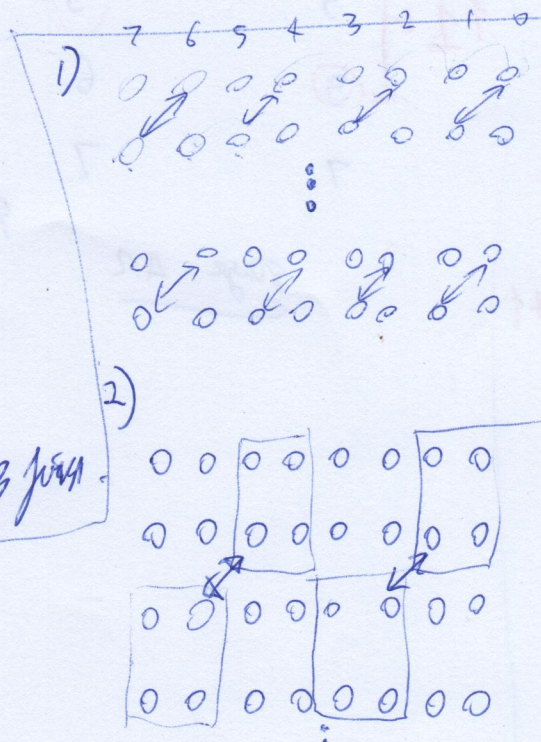 7 6 5 4 3 2 1 0
1)
2)